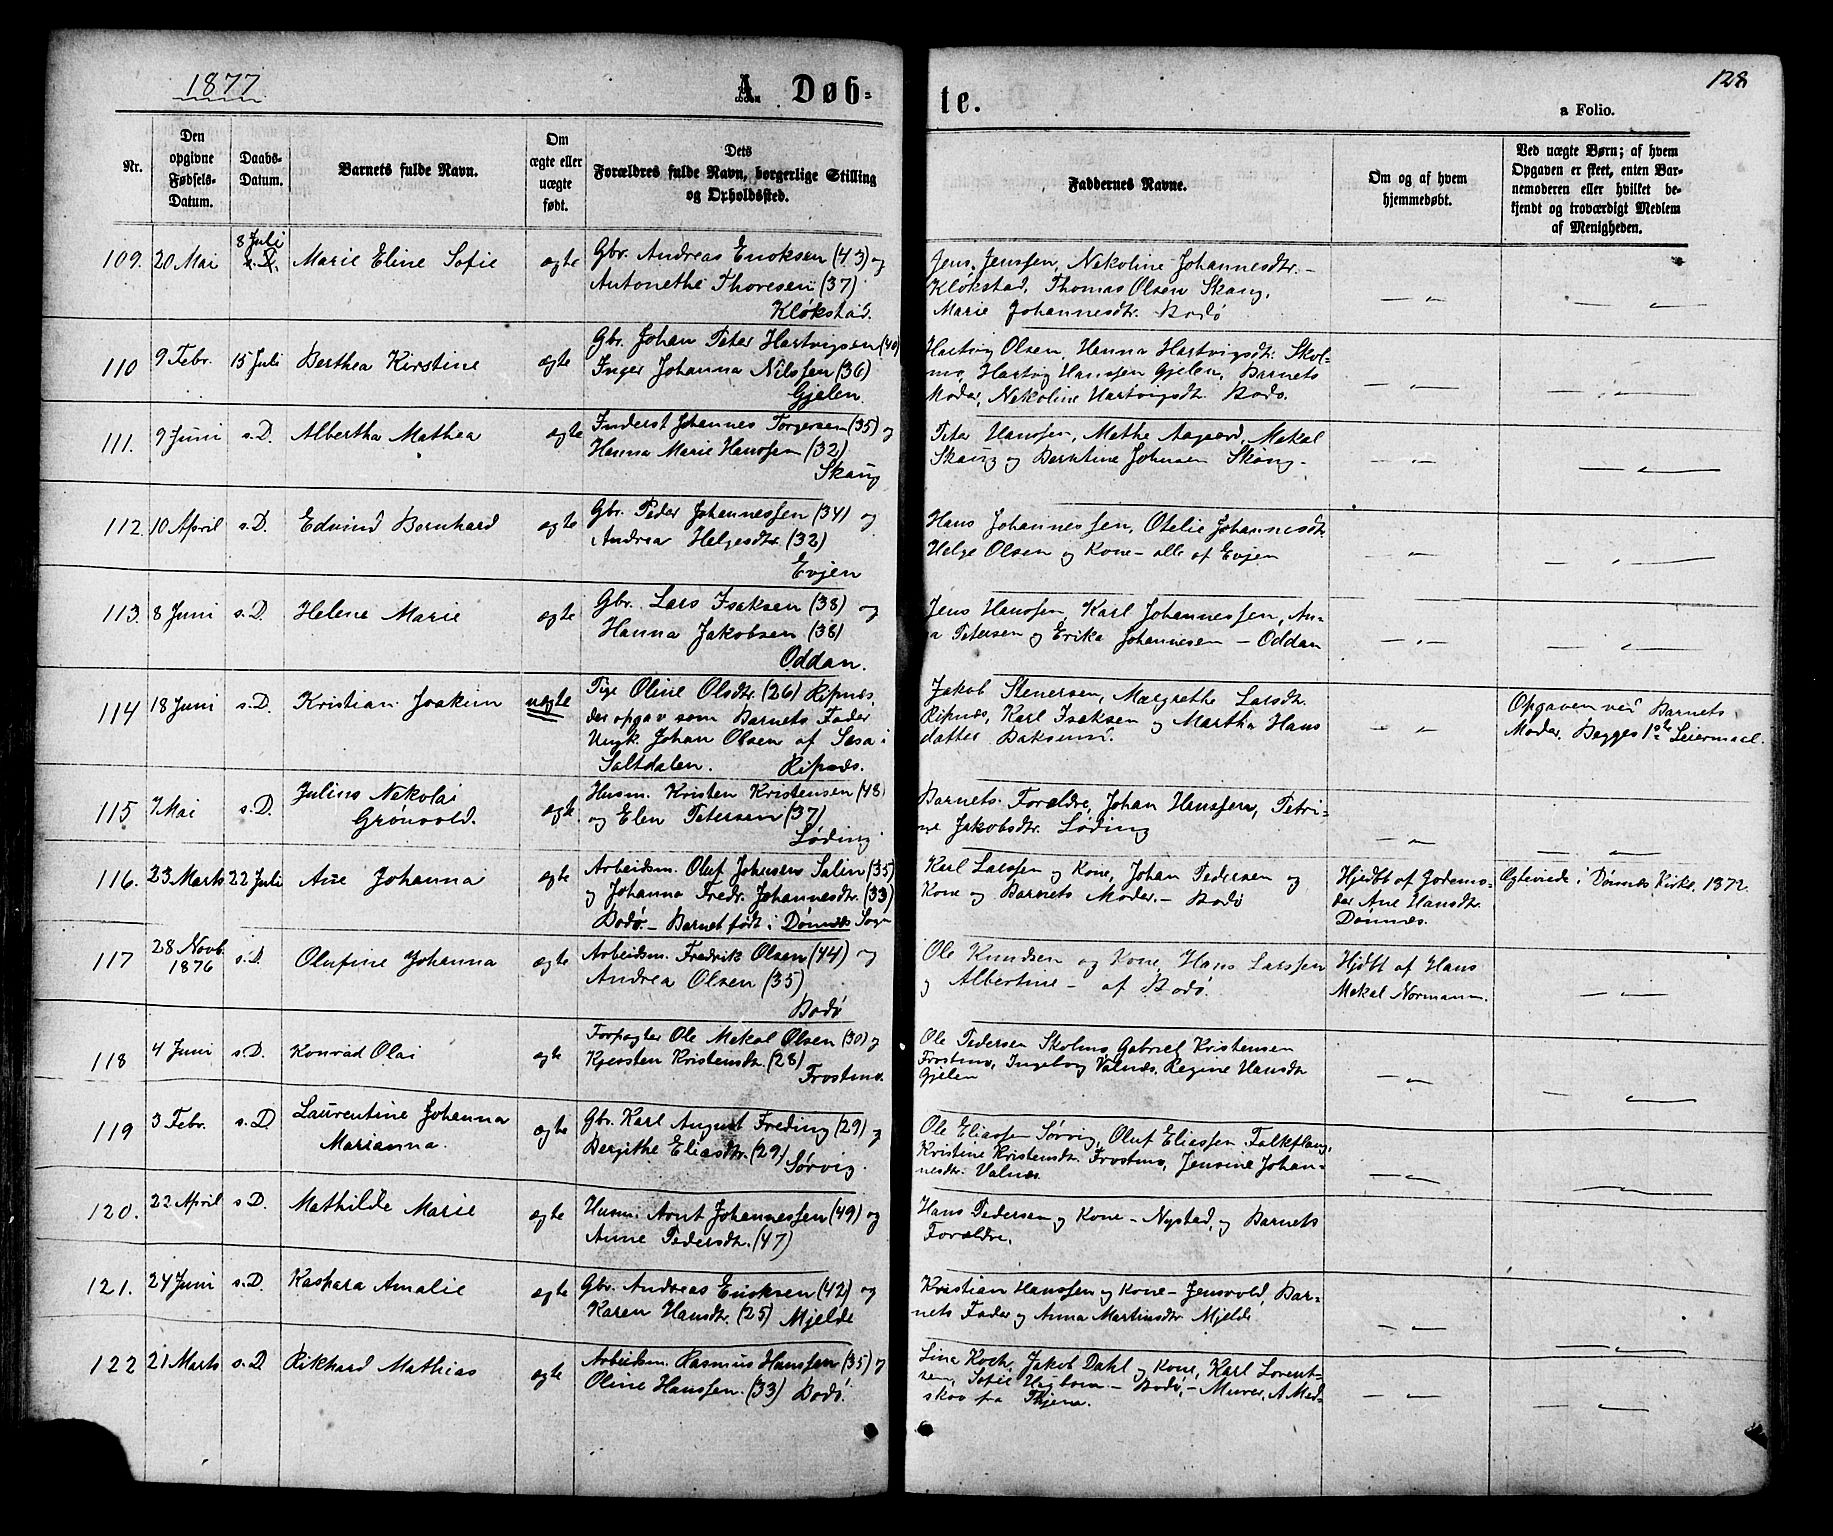 1877
A. Døb-
te.
128
a Folio.
Nr.
Den
opgivne
Fødsels-
Datum.
Daabs-
Datum.
Barnets fulde Navn.
Om
ægte eller
uægte
født.
Dets
Forældres fulde Navn, borgerlige Stilling
og Opholdssted.
Faddernes Navne.
Om og af hvem
hjemmedøbt.
Ved uægte Børn; af hvem
Opgaven er skeet, enten Bar-
nemoderen eller hvilket be-
kjendt og troværdigt Medlem
af Menigheden.
109. 20 Mai 8 Juli s.D. Marie Eline Sofie ægte
Gbr. Andreas Enoksen (43) og
Antonethe Thoresen (37)
Kløkstad.
Jens Jenssen, Nekoline Johannesdtr. -
Kløkstad, Thomas Olsen Skaug,
Marie Johannesdtr. Bodø
110 9 Febr. 15 Juli Berthea Kirstine ægte
Gbr. Johan Peter Hartvigsen (40)
Inger Johanna Nilssen (36)
Gjelen.
Hartvig Olsen, Hanna Hartvigsdtr. Skol-
mo, Hartvig Hanssen Gjelen, Barnets
Moder, Nekoline Hartvigsdtr. Bodø.
111. 9 Juni s.D. Albertha Mathea ægte
Inderst Johannes Torgersen (35) og
Hanna Marie Hanssen (32)
Skaug
Peter Hanssen, Mathe Aagaard, Mekal
Skaug og Berntine Johnsen Skaug-
112. 10 April s.D. Edvind Bernhard ægte
Gbr. Peder Johannessen (34) og
Andrea Helgesdtr. (32)
Evjen
Hans Johannessen, Otelie Johannesdtr.
Helge Olsen og Kone - alle af Evjen
113. 8 Juni s.D. Helene Marie ægte
Gbr. Lars Isaksen (38) og
Hanna Jakobsen (38)
Oddan.
Jens Hanssen, Karl Johannessen, An-
na Petersen og Erika Johannesen - Oddan
114 18 Juni s.D. Kristian Joakim uægte
Pige Oline Olsdtr. (26) Ripnæs,
der opgav som Barnets Fader
Ungk. Johan Olsen af Sæsa i
Saltdalen. Ripnæs.
Jakob Stenersen, Margrethe Larsdtr.
Ripnæs, Karl Isaksen og Martha Hans
datter Baksund.
Opgaven ved Barnets
Moder. Begges 1ste Leiermaal.
115 7 Mai s.D. Julius Nekolai
Grønvold. ægte
Husm. Kristen Kristensen (48)
og Elen Petersen (37)
Løding
Barnets Forældre, Johan Hanssen, Petri-
ne Jakobsdtr. Løding
116. 23 Marts 22 Juli Ane Johanna ægte
Arbeidsm. Oluf Johnsen Salen (35)
og Johanna Fredr. Johannesdtr. (33)
Bodø. - Barnet født i Dønnes Sogn
Karl Larssen og Kone, Johan Pedersen og
Kone og Barnets Moder. - Bodø
Hjdbt af Jordemo-
der Ane Hansdtr.
Dønnæs.
Ægteviede i Dønnæs Kirke, 1872.
117 28 Novb.
1876 s.D. Olufine Johanna ægte
Arbeidsm. Fredrik Olsen (44) og
Andrea Olsen (35)
Bodø
Ole Knudsen og Kone, Hans Larssen
og Albertine - af Bodø.
Hjdbt af Hans
Mekal Normann.
118 4 Juni s.D. Konrad Olai ægte
Forpagter Ole Mekal Olsen (30) og
Kjersten Kristensdtr. (28)
Frostmo.
Ole Pedersen Skolmo, Gabriel Kristensen
Frostmo, Ingeborg Valnæs, Regine Hansdtr.
Gjelen
119 3 Febr. s.D. Laurentine Johanna
Marianna. ægte
Gbr. Karl August Freding (29) og
Bergithe Eliasdtr. (29) Sørvig.
Ole Eliassen Sørvig, Oluf Eliassen Falkflaug,
Kristine Kristensdtr. Frostmo, Jensine Johan-
nesdtr. Valnæs.
120. 22 April s.D. Mathilde Marie ægte
Husm. Arnt Johannessen (49) og
Anne Pedersdtr. (47)
Hans Pedersen og Kone - Nystad, og Barnets
Forældre.
121. 24 Juni s.D. Kaspara Amalie ægte
Gbr. Andreas Enoksen (42) og
Karen Hansdtr. (25) Mjelde
Kristian Hanssen og Kone - Jensvold, Bar-
nets Fader og Anna Martinsdtr. Mjelde
122 21 Marts s.D. Rikhard Mathias ægte
Arbeidsm. Rasmus Hanssen (35) og
Oline Hanssen. (33) Bodø.
Lina Koch, Jakob Dahl og Kone, Karl Lorent-
sen, Sofie - Bodø, - Murer, A. Mad-
skov fra Thjena.